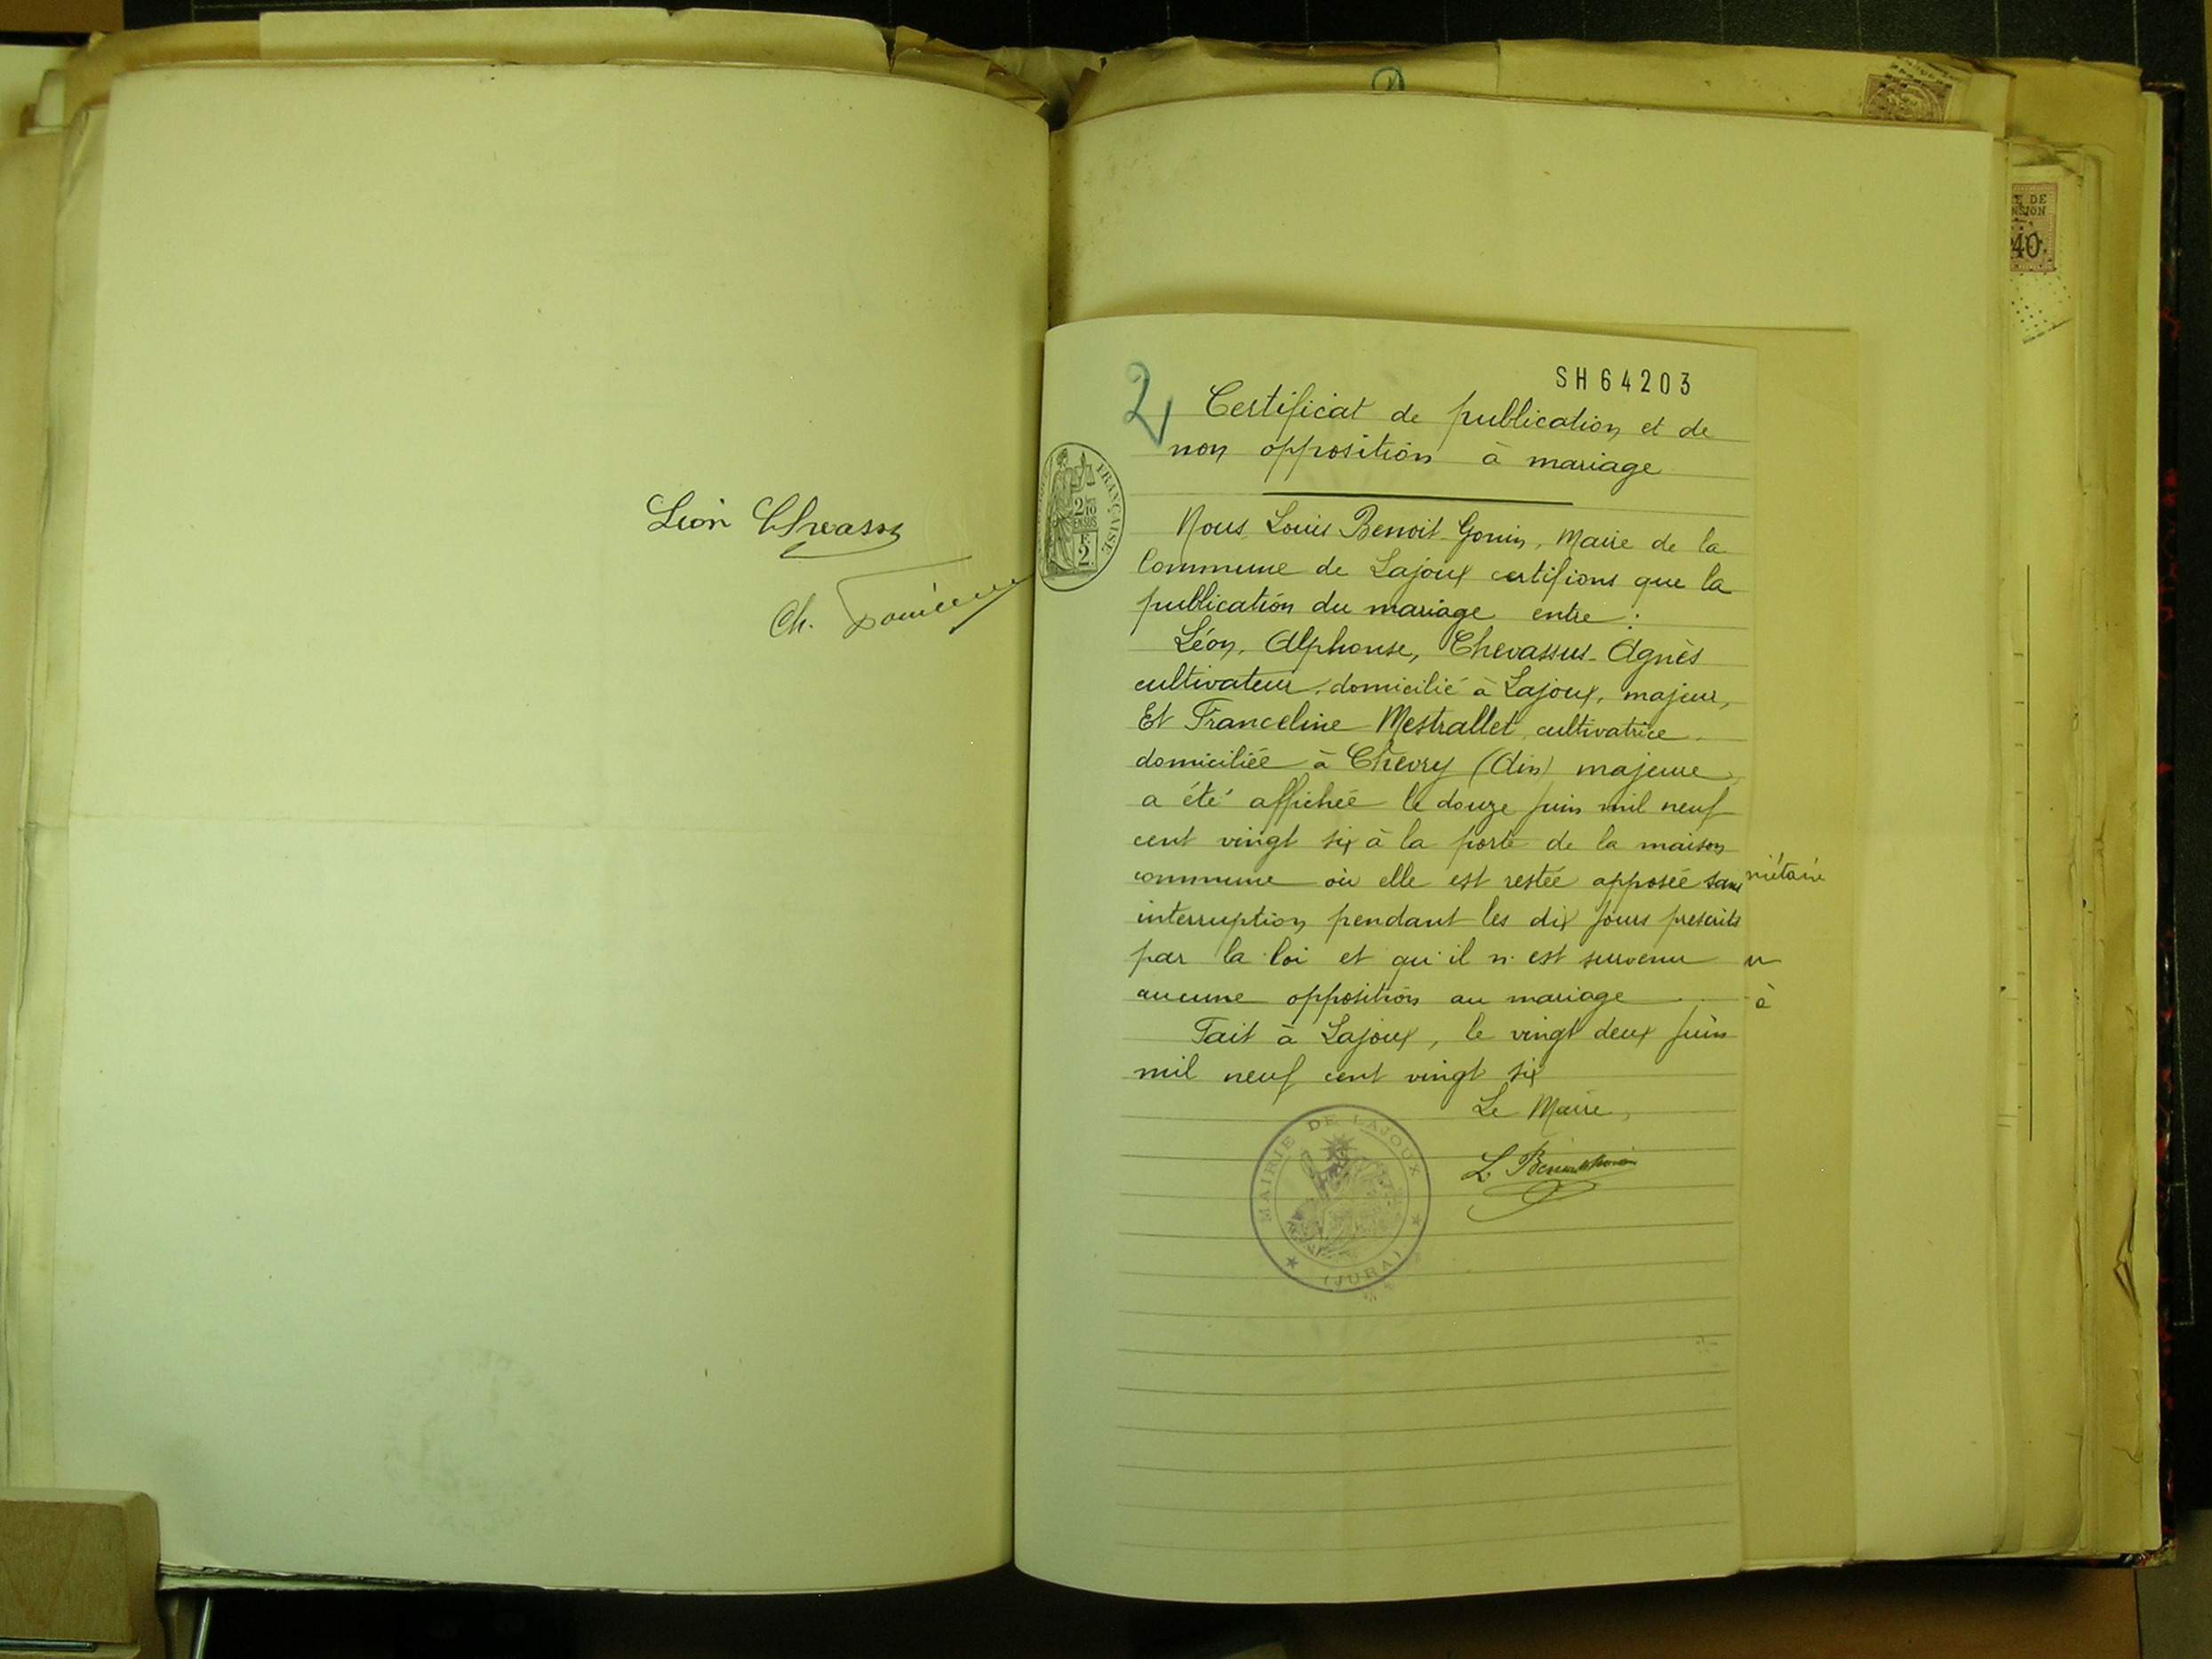 Léon Chevass
Ch.
E DE
NSION
40
SH64203
2
Certificat de publication et de
non opposition à mariage
FRANÇAISE
2/10
EN SUS
F.
2
Nous, Louis Benoit-Gonin, Maire de la
Commune de Lajoux certifions que la
publication du mariage entre :
Léon, Alphonse, Chevassus-Agnès
cultivateur, domicilié à Lajoux, majeur,
Et Franceline Mestrallet, cultivatrice
domiciliée à Chevry (Ain) majeure,
a été affichée le douze Juin mil neuf
cent vingt six à la porte de la maison
commune où elle est restée apposée sans
interruption pendant les dix jours prescrits
par la loi et qu'il n'est survenu
aucune opposition au mariage
Fait à Lajoux, le vingt deux Juin
mil neuf cent vingt six
Le Maire,
L. Benoit Gonin
MAIRIE DE LAJOUX
(JURA)
à